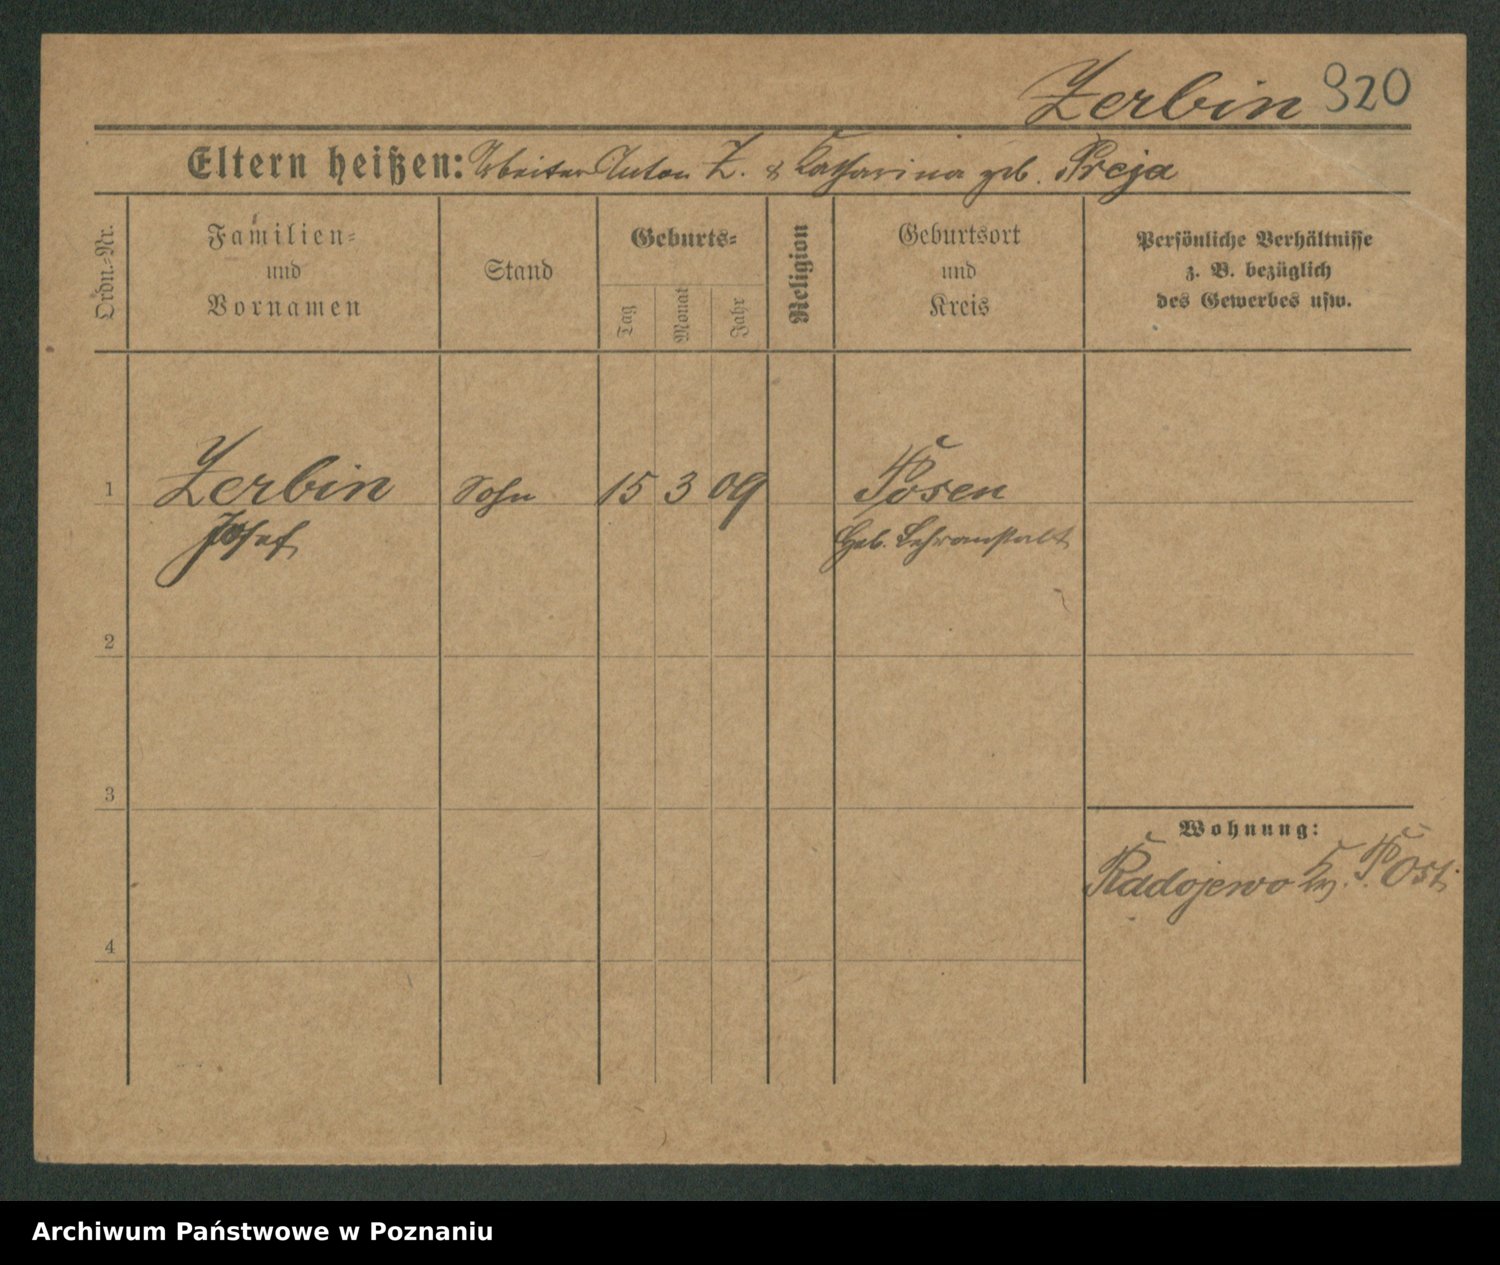 Zerbin 920
Eltern heißen: Arbeiter Anton Z. & Katharina geb. Preja
Ordn.-Nr.
Familien-
und
Vornamen
Stand
Geburts-
Tag
Monat
Jahr
Religion
Geburtsort
und
Kreis
Persönliche Verhältnisse
z. B. bezüglich
des Gewerbes usw.
1 Zerbin Sohn 15 3 09 Posen
Josef Heb. Lehranstalt
2
3
Wohnung:
Radojewo Kr. P. Ost.
4
Archiwum Państwowe w Poznaniu